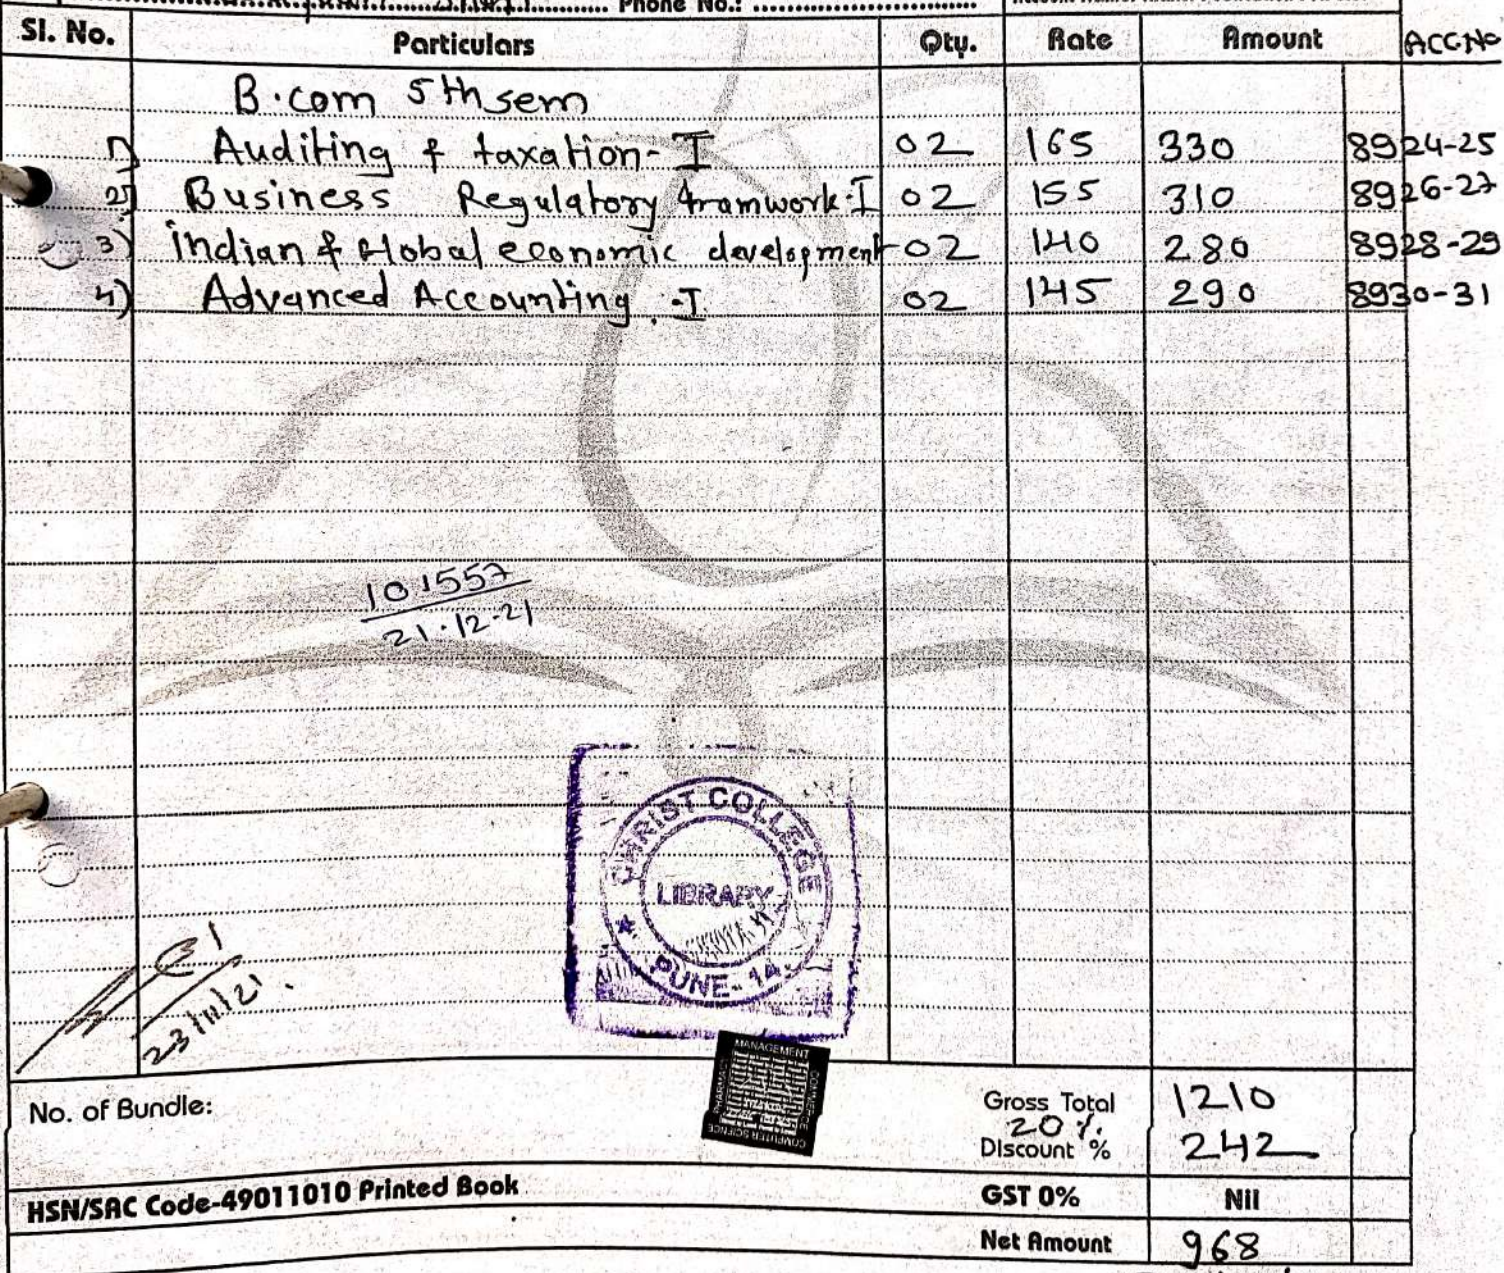 Phone No.:
Sl. No. Particulars Qty. Rate Amount ACC.No
B.com 5th sem
1) Auditing & taxation-I 02 165 330 8924-25
2) Business Regulatory framwork-I 02 155 310 8926-27
3) indian & Global economic development 02 140 280 8928-29
4) Advanced Accounting.-I 02 145 290 8930-31
101557
21.12-21
CHRIST COLLEGE
LIBRARY
PUNE-14
23/11/21
MANAGEMENT
COMMERCE
PHARMACY
COMPUTER SCIENCE
No. of Bundle: Gross Total 1210
20%.
Discount % 242
HSN/SAC Code-49011010 Printed Book GST 0% Nil
Net Amount 968